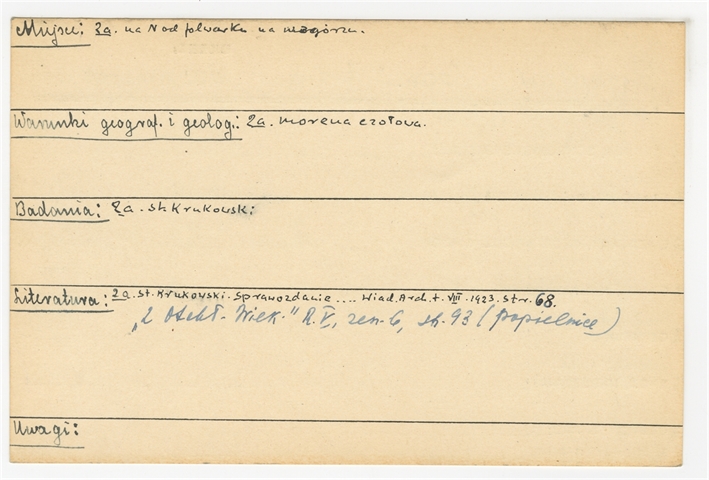 Miejsce: 2a. na N od folwarku na wzgórzu.
Warunki geograf. i geolog.: 2a. morena czołowa.
Badania: 2a. St. Krukowski
Literatura: 2a. St. Krukowski. Sprawozdanie .... Wiad. Arch. t. VIII. 1923. str. 68.
„Z Otchł. Wiek." R. V, zesz. 6, str. 93 (popielnice)
Uwagi: